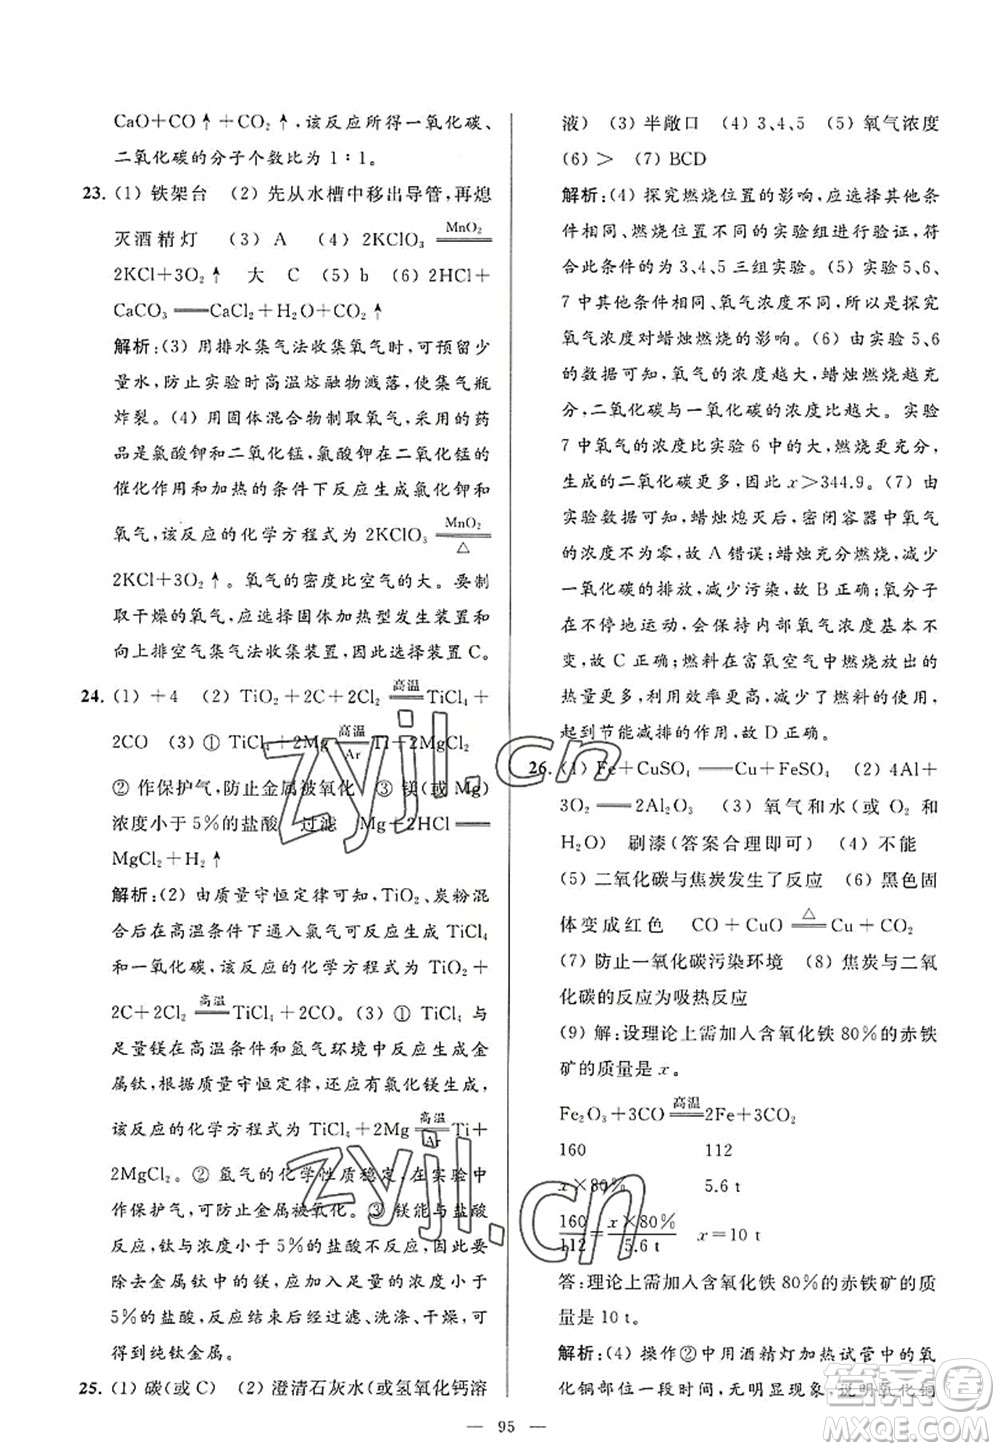 CaO+CO↑+CO₂↑,该反应所得一氧化碳、
二氧化碳的分子个数比为1∶1。
23. (1) 铁架台 (2) 先从水槽中移出导管,再熄
灭酒精灯 (3) A (4) 2KClO₃ ══MnO₂══
2KCl+3O₂↑ 大 C (5) b (6) 2HCl+
CaCO₃══CaCl₂+H₂O+CO₂↑
解析:(3) 用排水集气法收集氧气时,可预留少
量水,防止实验时高温熔融物溅落,使集气瓶
炸裂。(4) 用固体混合物制取氧气,采用的药
品是氯酸钾和二氧化锰,氯酸钾在二氧化锰的
催化作用和加热的条件下反应生成氯化钾和
氧气,该反应的化学方程式为2KClO₃ ══MnO₂/△══
2KCl+3O₂↑。氧气的密度比空气的大。要制
取干燥的氧气,应选择固体加热型发生装置和
向上排空气集气法收集装置,应选择装置C。
24. (1) +4 (2) TiO₂+2C+2Cl₂ ══高温══ TiCl₄+
2CO (3) ① TiCl₄+2Mg ══高温/Ar══ Ti+2MgCl₂
② 作保护气,防止金属被氧化 ③ 镁(或Mg)
浓度小于5%的盐酸 过滤 Mg+2HCl══
MgCl₂+H₂↑
解析:(2) 由质量守恒定律可知,TiO₂、炭粉混
合后在高温条件下通入氯气可反应生成TiCl₄
和一氧化碳,该反应的化学方程式为TiO₂+
2C+2Cl₂ ══高温══ TiCl₄+2CO。(3) ① TiCl₄与
足量镁在高温条件和氩气环境中反应生成金
属钛,根据质量守恒定律,还应有氯化镁生成,
该反应的化学方程式为TiCl₄+2Mg ══高温/Ar══ Ti+
2MgCl₂。② 氩气的化学性质稳定,在实验中
作保护气,可防止金属被氧化。③ 镁能与盐酸
反应,钛与浓度小于5%的盐酸不反应,因此要
除去金属钛中的镁,应加入足量的浓度小于
5%的盐酸,反应结束后经过滤、洗涤、干燥,可
得到纯钛金属。
25. (1) 碳(或C) (2) 澄清石灰水(或氢氧化钙溶
液) (3) 半敞口 (4) 3、4、5 (5) 氧气浓度
(6) > (7) BCD
解析:(4) 探究燃烧位置的影响,应选择其他条
件相同、燃烧位置不同的实验组进行验证,符
合此条件的为3、4、5三组实验。(5) 实验5、6、
7中其他条件相同、氧气浓度不同,所以是探究
氧气浓度对蜡烛燃烧的影响。(6) 由实验5、6
的数据可知,氧气的浓度越大,蜡烛燃烧越充
分,二氧化碳与一氧化碳的浓度比越大。实验
7中氧气的浓度比实验6中的大,燃烧更充分,
生成的二氧化碳更多,因此x>344.9。(7) 由
实验数据可知,蜡烛熄灭后,密闭容器中氧气
的浓度不为零,故A错误;蜡烛充分燃烧,减少
一氧化碳的排放,减少污染,故B正确;氧分子
在不停地运动,会保持内部氧气浓度基本不
变,故C正确;燃料在富氧空气中燃烧放出的
热量更多,利用效率更高,减少了燃料的使用,
起到节能减排的作用,故D正确。
26. (1) Fe+CuSO₄══Cu+FeSO₄ (2) 4Al+
3O₂══2Al₂O₃ (3) 氧气和水(或O₂和
H₂O) 刷漆(答案合理即可) (4) 不能
(5) 二氧化碳与焦炭发生了反应 (6) 黑色固
体变成红色 CO+CuO ══△══ Cu+CO₂
(7) 防止一氧化碳污染环境 (8) 焦炭与二氧
化碳的反应为吸热反应
(9) 解:设理论上需加入含氧化铁80%的赤铁
矿的质量是x。
Fe₂O₃+3CO ══高温══ 2Fe+3CO₂
160 112
x×80% 5.6 t
160/112=x×80%/5.6 t x=10 t
答:理论上需加入含氧化铁80%的赤铁矿的质
量是10 t。
解析:(4) 操作②中用酒精灯加热试管中的氧
化铜部位一段时间,无明显现象,说明氧化铜
— 95 —
zyjl.cn
zyjl.cn
答案圈
MXQE.COM